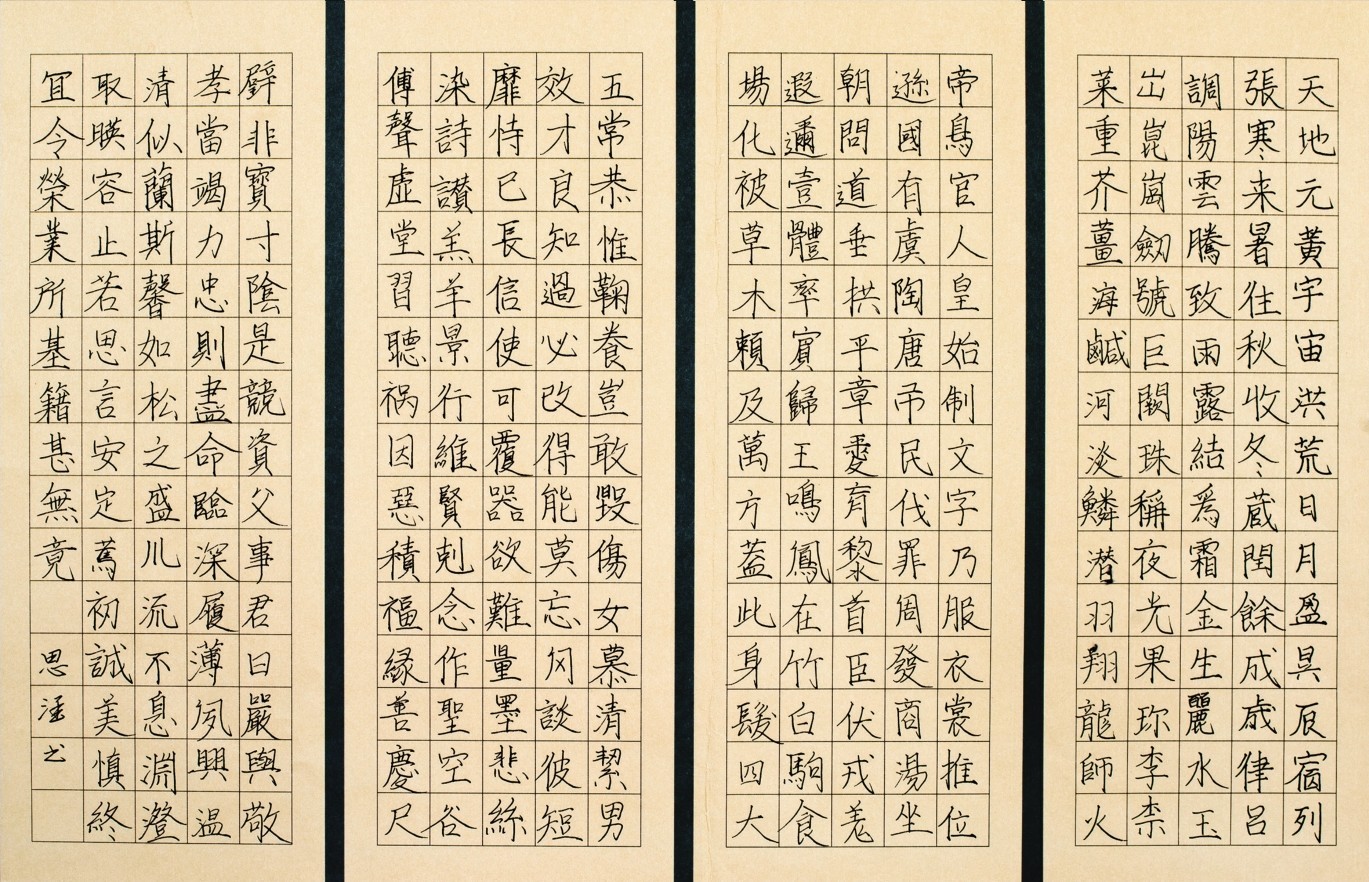 天地元黃宇宙洪荒日月盈昃辰宿列
張寒来暑往秋收冬蔵閏餘成歳律呂
調陽雲騰致雨露結為霜金生麗水玉
出崑崗劒號巨闕珠稱夜光果珎李柰
菜重芥薑海鹹河淡鱗潜羽翔龍師火
帝鳥官人皇始制文字乃服衣裳推位
遜國有虞陶唐弔民伐罪周發商湯坐
朝問道垂拱平章愛育黎首臣伏戎羌
遐邇壹體率賓歸王鳴鳳在竹白駒食
場化被草木賴及萬方蓋此身髮四大
五常恭惟鞠養豈敢毀傷女慕清絜男
效才良知過必改得能莫忘罔談彼短
靡恃己長信使可覆器欲難量墨悲絲
染詩讃羔羊景行維賢剋念作聖空谷
傅聲虛堂習聽祸因惡積福緣善慶尺
璧非寶寸陰是競資父事君曰嚴與敬
孝當竭力忠則盡命臨深履薄夙興温
清似蘭斯馨如松之盛川流不息淵澄
取暎容止若思言安定篤初誠美慎終
宜令榮業所基籍甚無竟